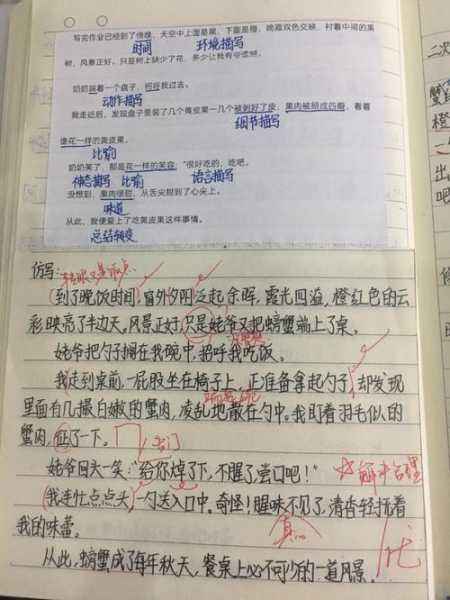 写完作业已经到了傍晚，天空中上面是黑，下面是橙，晚霞双色交映，衬着中间的果
时间 环境描写
树，风景正好。只是树上缺少了花，多少让我有些遗憾。
奶奶端着一个盘子，招呼我过去。
动作描写
我走近后，发现盘子里装了几个黄皮果一几个被剥好了皮，果肉被掰成四瓣，看着
细节描写
像花一样的黄皮果。
比喻
奶奶笑了，都是花一样的笑容，“很好吃的，吃吧。
神态描写 比喻 语言描写
没想到，果肉很甜，从舌尖甜到了心尖上。
味道
从此，我便爱上了吃黄皮果这件事情。
总结转变
仿写：
到了晚饭时间，窗外夕阳泛起余晖，霞光四溢，橙红色的云
彩映亮了半边天。风景正好，只是姥爷又把螃蟹端上了桌。
姥爷把勺子搁在我碗中，招呼我吃饭。
我走到桌前，一屁股坐在椅子上，正准备拿起勺子，却发现
里面有几撮白嫩的蟹肉，凌乱地散在勺中。我盯着羽毛似的
蟹肉，怔了一下。
姥爷回头一笑：“给你焯了下，不腥了，尝口吧！”
我连忙点点头，一勺送入口中。奇怪！腥味不见了，清香轻抚着
我的味蕾。
真
从此，螃蟹成了每年秋天，餐桌上必不可少的一道风景。
二次
蟹
橙
出
吧